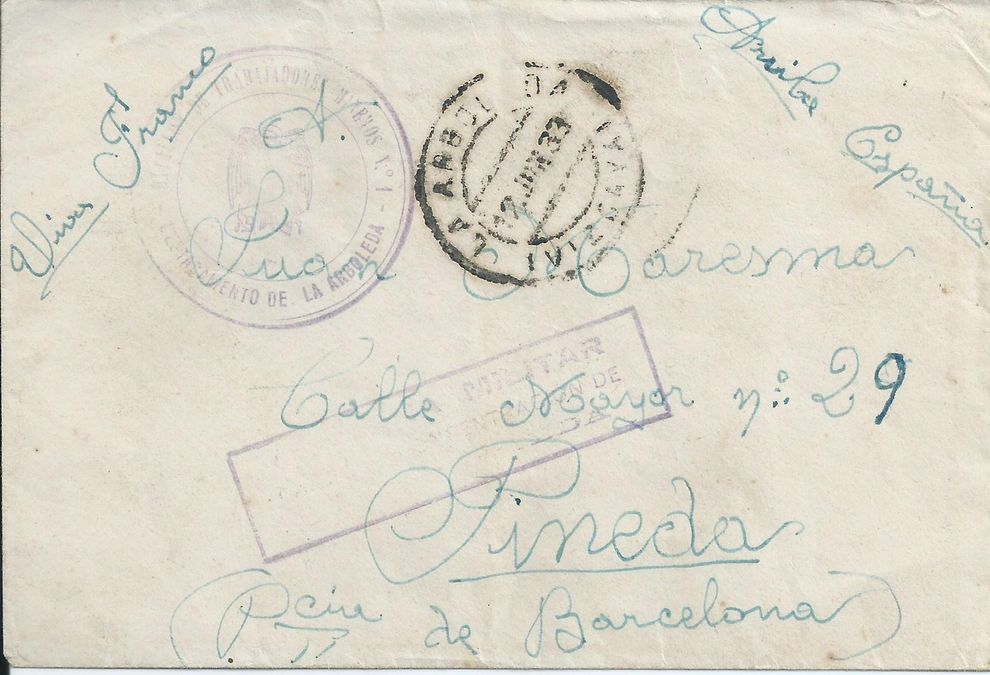 Viva Franco
Arriba España
TRABAJADORES MINEROS N.º 1
DE LA ARBOLEDA -
LA ARBOLEDA
JUN 39
A.
Juan Maresma
MILITAR
DE
Calle Mayor nº 29
Pineda
(Pcia de Barcelona)